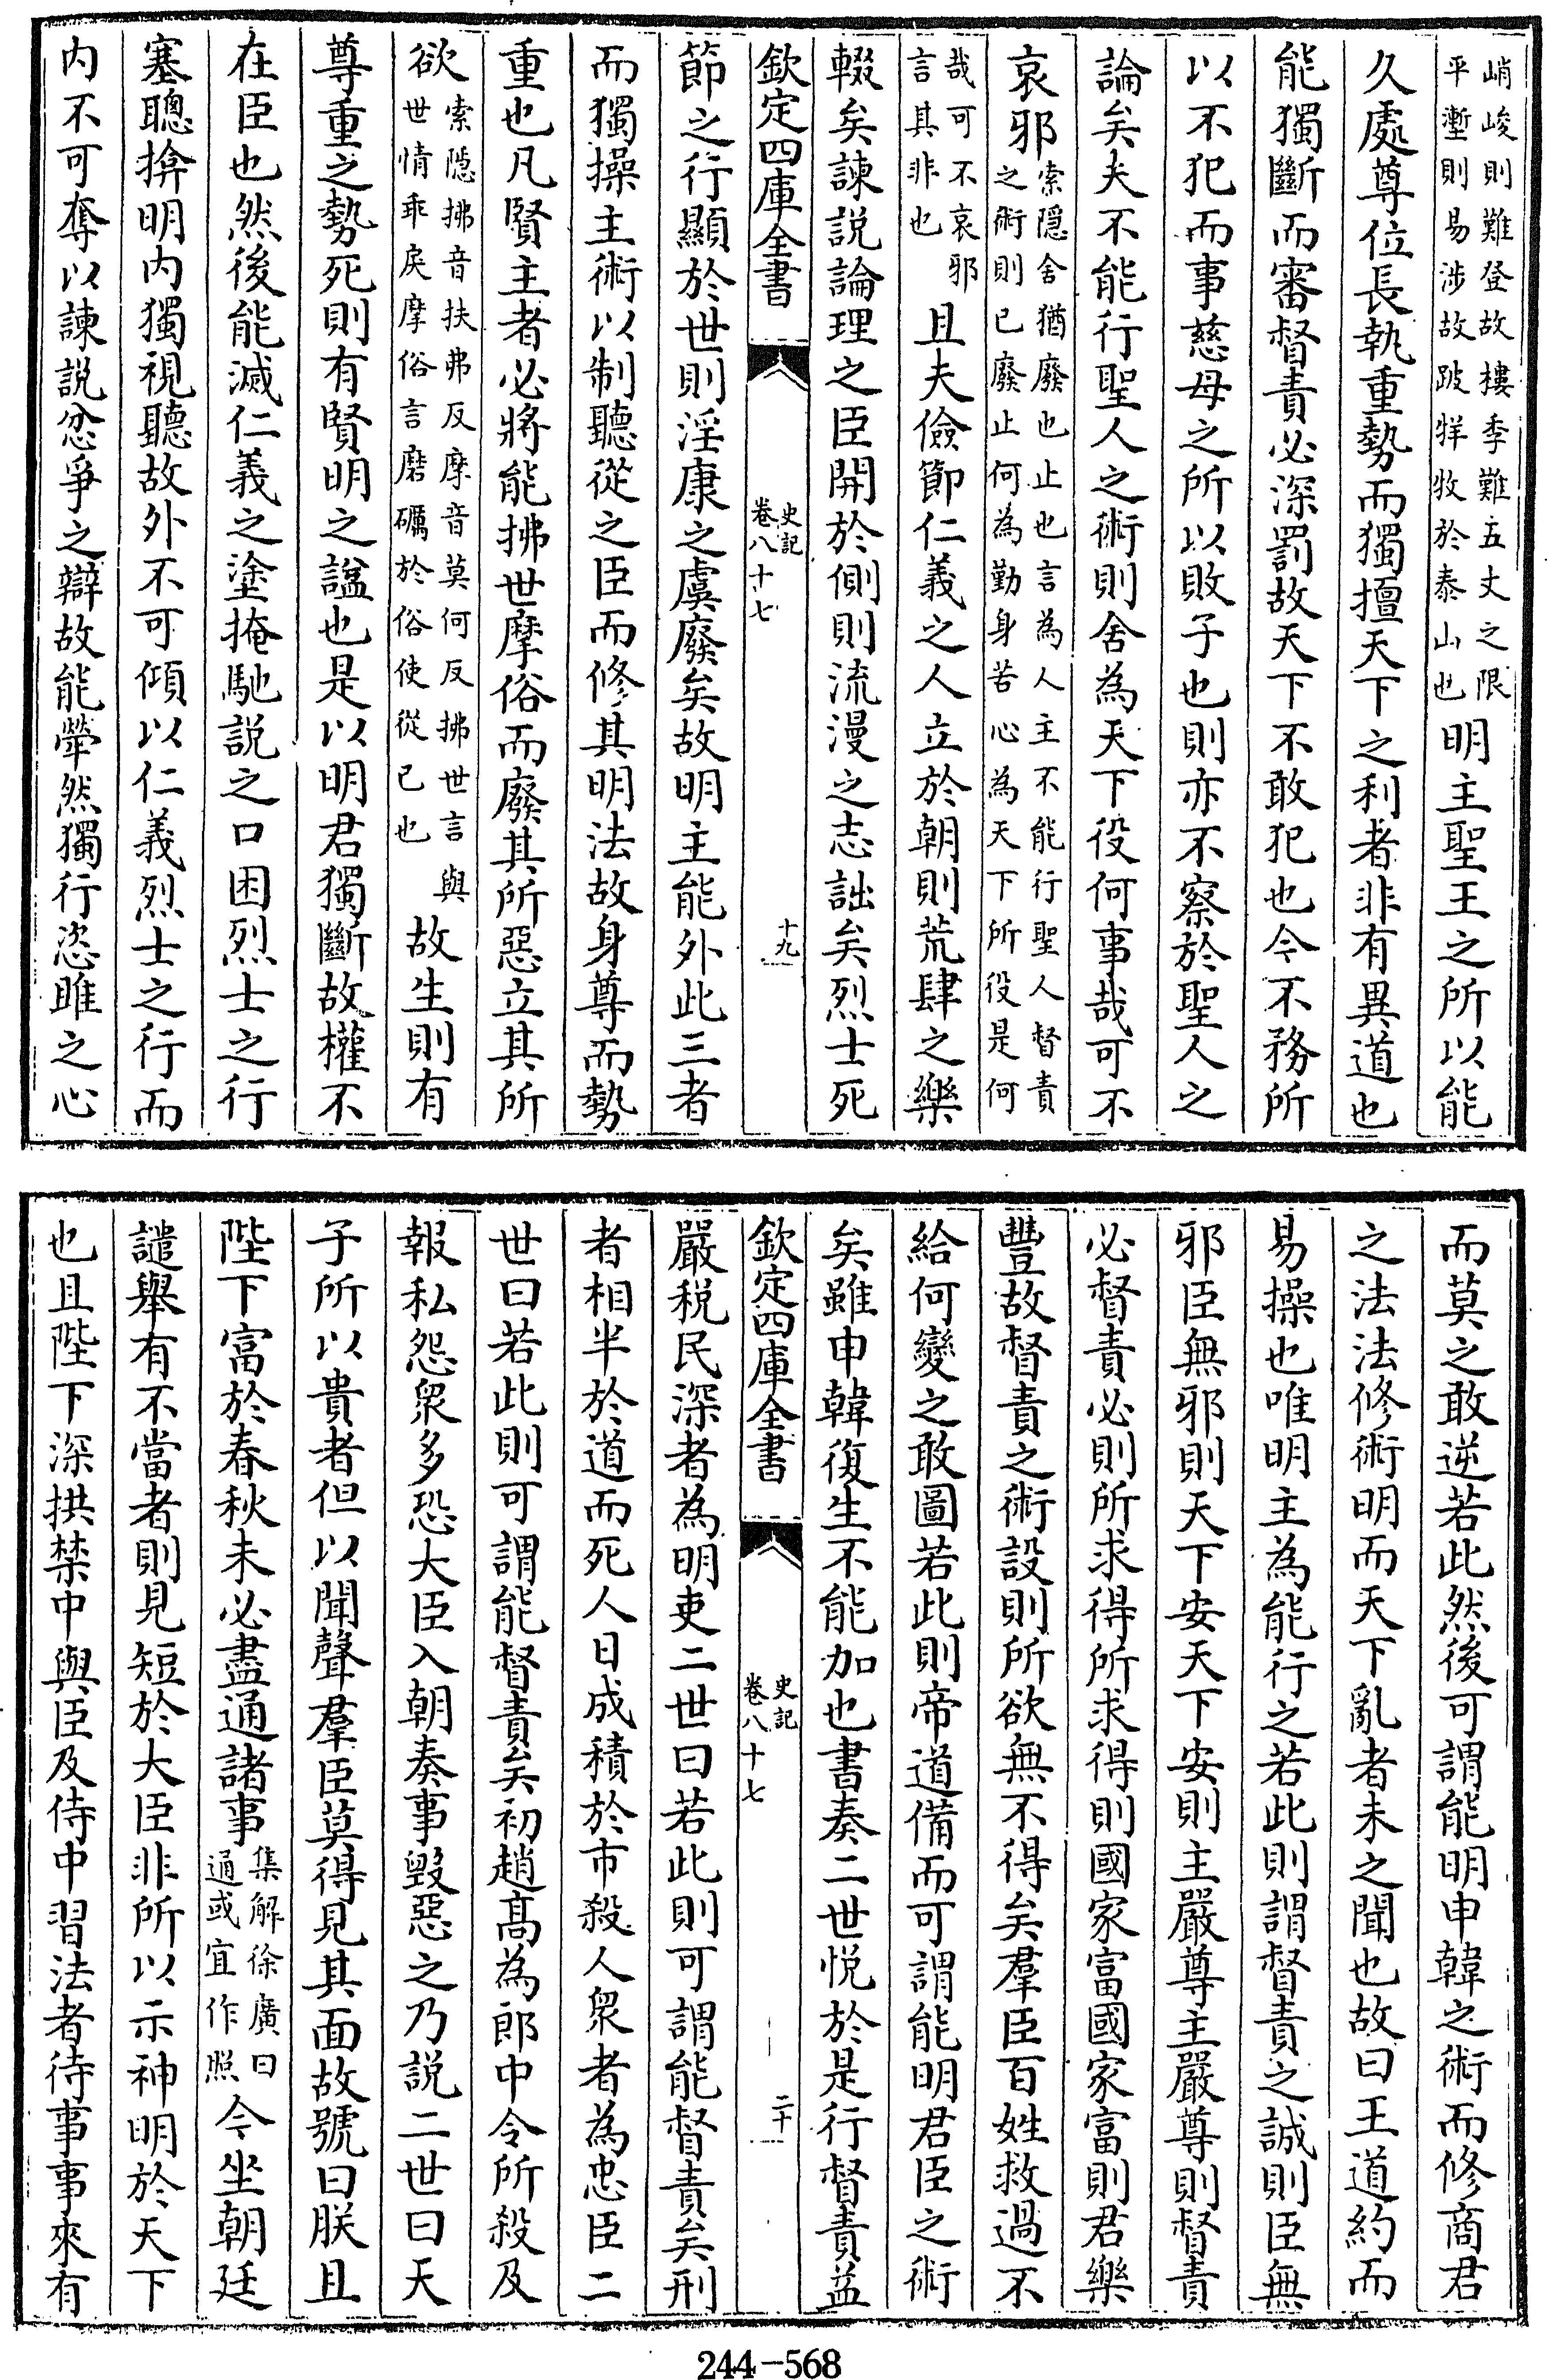 峭峻則難登故樓季難五丈之限平塹則易涉故跛牂牧於泰山也明主聖王之所以能
久處尊位長執重勢而獨擅天下之利者非有異道也
能獨斷而審督責必深罰故天下不敢犯也今不務所
以不犯而事慈母之所以敗子也則亦不察於聖人之
論矣夫不能行聖人之術則舍為天下役何事哉可不
哀邪索隱舍猶廢也止也言為人主不能行聖人督責之術則已廢止何為勤身苦心為天下所役是何
哉可不哀邪言其非也且夫儉節仁義之人立於朝則荒肆之樂
輟矣諫說論理之臣開於側則流漫之志詘矣烈士死
欽定四庫全書 史記卷八十七 十九
節之行顯於世則淫康之虞廢矣故明主能外此三者
而獨操主術以制聽從之臣而修其明法故身尊而勢
重也凡賢主者必將能拂世摩俗而廢其所惡立其所
欲索隱拂音扶弗反摩音莫何反拂世言與世情乖戾摩俗言磨礪於俗使從已也故生則有
尊重之勢死則有賢明之諡也是以明君獨斷故權不
在臣也然後能滅仁義之塗掩馳說之口困烈士之行
塞聰揜明内獨視聽故外不可傾以仁義烈士之行而
内不可奪以諫說忿爭之辯故能犖然獨行恣睢之心
而莫之敢逆若此然後可謂能明申韓之術而修商君
之法法修術明而天下亂者未之聞也故曰王道約而
易操也唯明主為能行之若此則謂督責之誠則臣無
邪臣無邪則天下安天下安則主嚴尊主嚴尊則督責
必督責必則所求得所求得則國家富國家富則君樂
豐故督責之術設則所欲無不得矣羣臣百姓救過不
給何變之敢圖若此則帝道備而可謂能明君臣之術
矣雖申韓復生不能加也書奏二世悅於是行督責益
欽定四庫全書 史記卷八十七 二十
嚴税民深者為明吏二世曰若此則可謂能督責矣刑
者相半於道而死人日成積於市殺人衆者為忠臣二
世曰若此則可謂能督責矣初趙高為郎中令所殺及
報私怨衆多恐大臣入朝奏事毀惡之乃説二世曰天
子所以貴者但以聞聲羣臣莫得見其面故號曰朕且
陛下富於春秋未必盡通諸事集解徐廣曰通或宜作照今坐朝廷
譴舉有不當者則見短於大臣非所以示神明於天下
也且陛下深拱禁中與臣及侍中習法者待事事來有
244-568